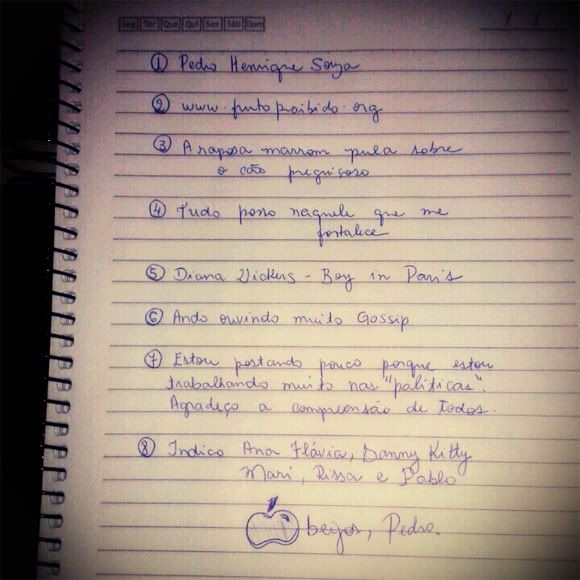 Seg Ter Qua Qui Sex Sáb Dom
① Pedro Henrique Souza
② www.frutoproibido.org
③ A raposa marrom pula sobre
o cão preguiçoso
④ Tudo posso naquele que me
fortalece
⑤ Diana Vickers - Boy in Paris
⑥ Ando ouvindo muito Gossip
⑦ Estou postando pouco porque estou
trabalhando muito nas "políticas".
Agradeço a compreensão de todos.
⑧ Indico Ana Flávia, Danny Kitty
Mari, Rissa e Pablo
beijos, Pedro.